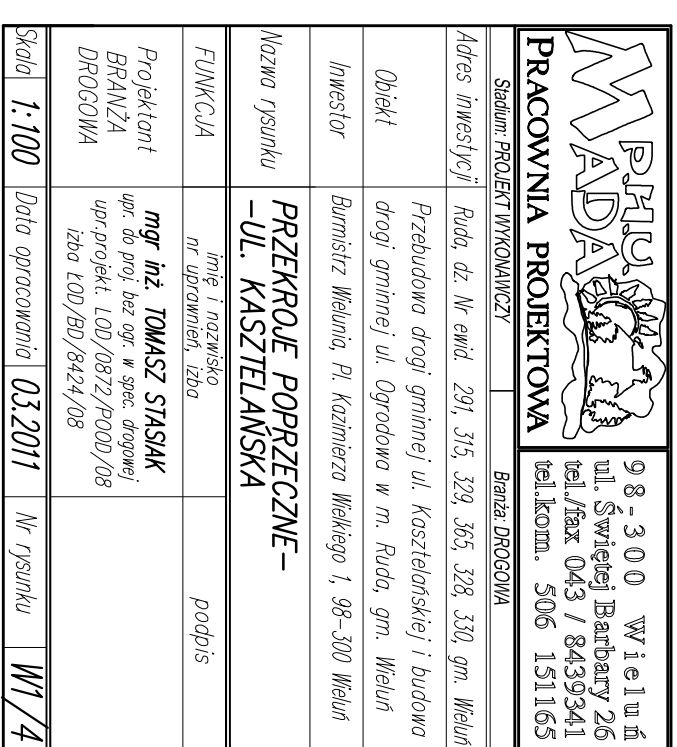 P.H.U.
MADA
PRACOWNIA PROJEKTOWA
98-300 Wieluń
ul. Świętej Barbary 26
tel./fax 043 / 8439341
tel.kom. 506 151165
Stadium: PROJEKT WYKONAWCZY
Branża: DROGOWA
Adres inwestycji
Ruda, dz. Nr ewid. 291, 315, 329, 365, 328, 330, gm. Wieluń
Obiekt
Przebudowa drogi gminnej ul. Kasztelańskiej i budowa
drogi gminnej ul. Ogrodowa w m. Ruda, gm. Wieluń
Inwestor
Burmistrz Wielunia, Pl. Kazimierza Wielkiego 1, 98-300 Wieluń
Nazwa rysunku
PRZEKROJE POPRZECZNE-
-UL. KASZTELAŃSKA
FUNKCJA
imię i nazwisko
nr uprawnień, izba
podpis
Projektant
BRANŻA
DROGOWA
mgr inż. TOMASZ STASIAK
upr. do proj. bez ogr. w spec. drogowej
upr.projekt. LOD/0872/POOD/08
izba ŁOD/BD/8424/08
Skala 1:100 Data opracowania 03.2011 Nr rysunku W1/4